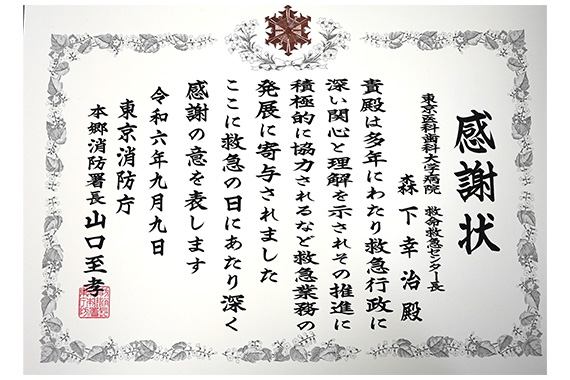 感謝状
東京医科歯科大学病院 救命救急センター長
森下幸治殿
貴殿は多年にわたり救急行政に
深い関心と理解を示されその推進に
積極的に協力されるなど救急業務の
発展に寄与されました
ここに救急の日にあたり深く
感謝の意を表します
令和六年九月九日
東京消防庁
本郷消防署長 山口至孝